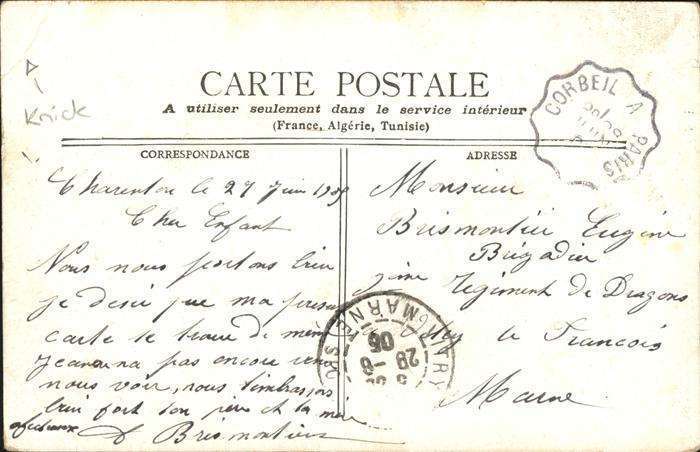 Knick
CARTE POSTALE
A utiliser seulement dans le service intérieur
(France, Algérie, Tunisie)
CORRESPONDANCE
Charenton le 27 Juin
Cher Enfant
Nous nous portons bien
je désir que ma
carte te trouve de même
Jeanne na pas encore
nous voir, nous
bien fort ton père et ta mère
Brismontier
ADRESSE
Monsieur
Brismontier Eugène
Brigadier
Régiment de Dragons
le François
Marne
CORBEIL A PARIS
MARNE
28 -6